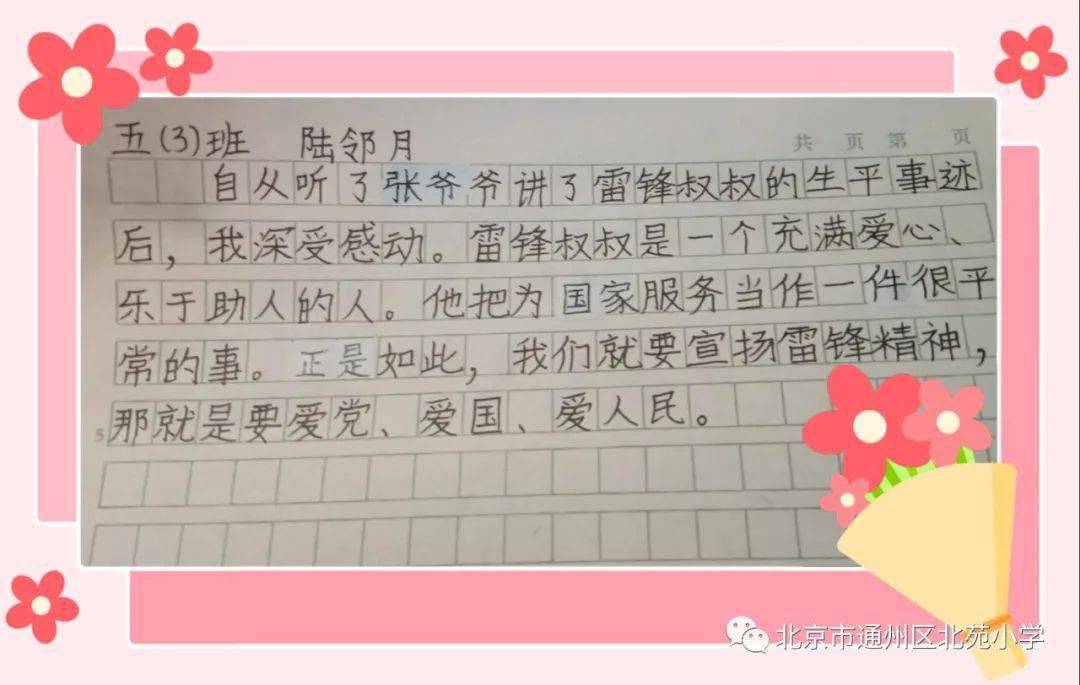 五(3)班 陆邻月
共 页 第 页
自从听了张爷爷讲了雷锋叔叔的生平事迹
后，我深受感动。雷锋叔叔是一个充满爱心、
乐于助人的人。他把为国家服务当作一件很平
常的事。正是如此，我们就要宣扬雷锋精神，
5 那就是要爱党、爱国、爱人民。
北京市通州区北苑小学